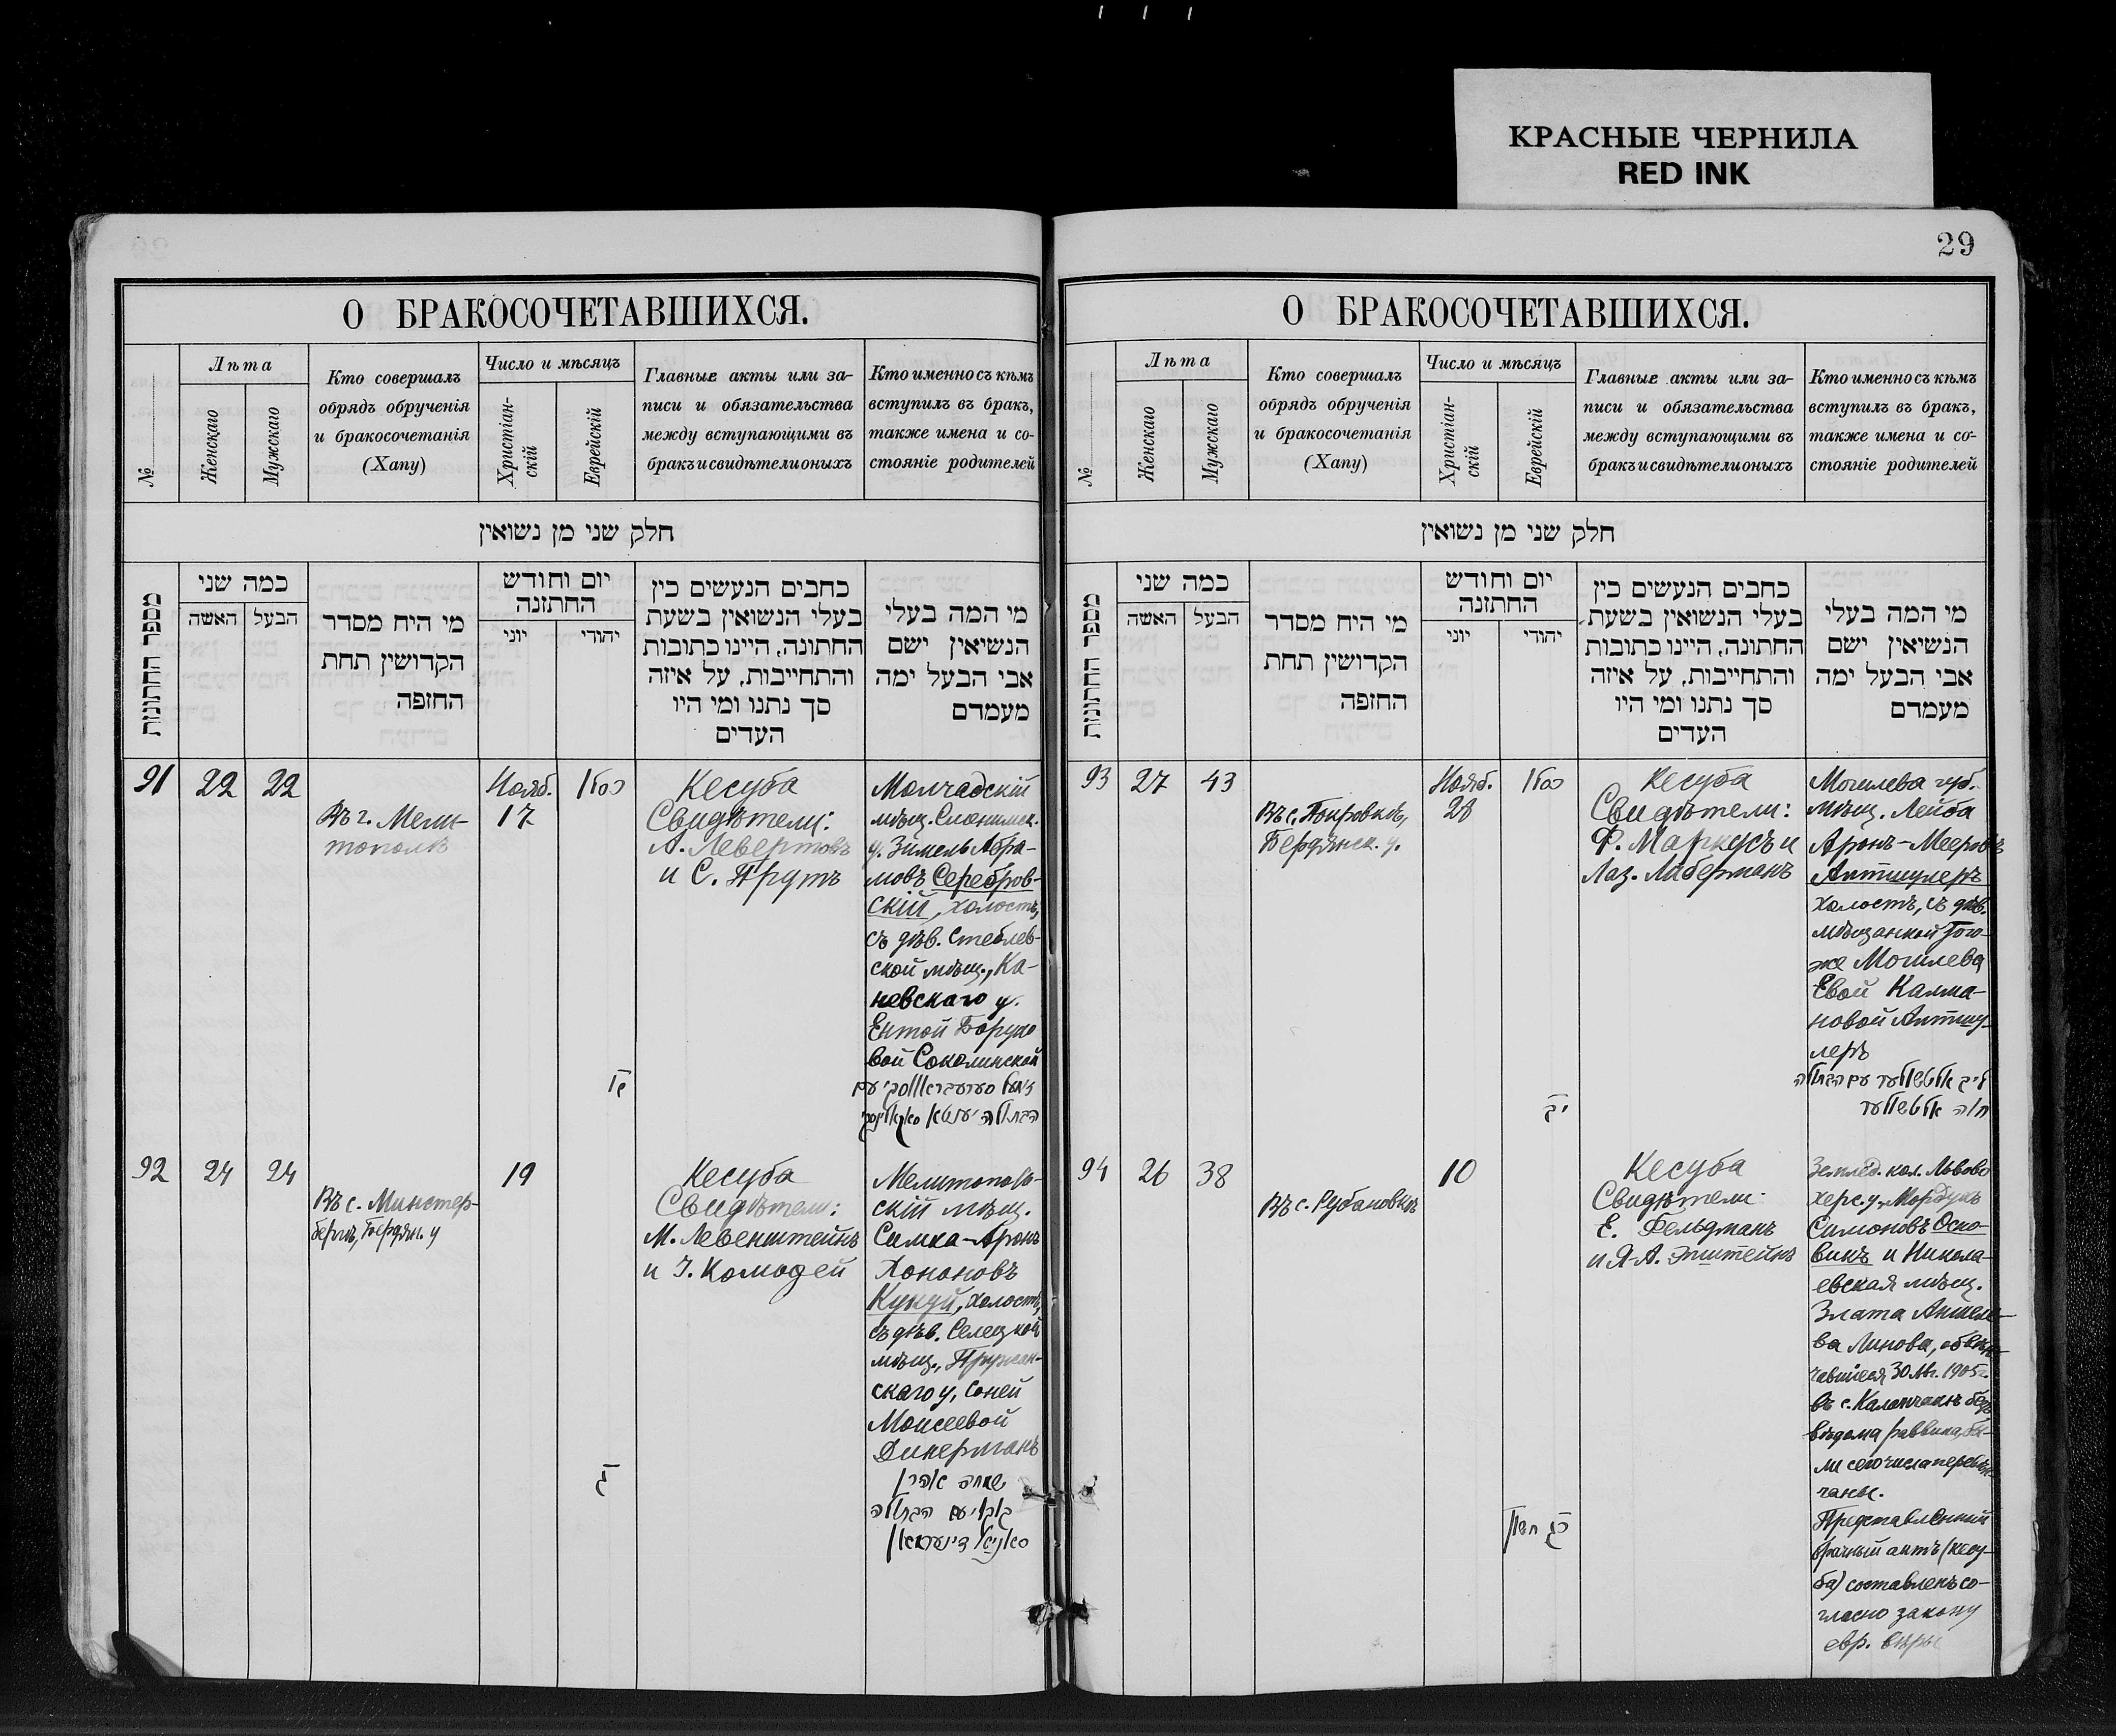 КРАСНЫЕ ЧЕРНИЛА
RED INK
О БРАКОСОЧЕТАВШИХСЯ.
№
Лѣта
Женскаго
Мужскаго
Кто совершалъ
обрядъ обрученія
и бракосочетанія
(Хапу)
Число и мѣсяцъ
Христіан-
скій
Еврейскій
Главные акты или за-
писи и обязательства
между вступающими въ
бракъ и свидѣтели оныхъ
Кто именно съ кѣмъ
вступилъ въ бракъ,
также имена и со-
стояніе родителей
חלק שני מן נשואין
מספר החתונות
כמה שני
האשה
הבעל
מי היח מסדר
הקדושין תחת
החופה
יום וחודש
החתונה
יוני
יהודי
כתבים הנעשים בין
בעלי הנשואין בשעת
החתונה, היינו כתובות
והתחייבות, על איזה
סך נתנו ומי היו
העדים
מי המה בעלי
הנשיאין ישם
אבי הבעל ימה
מעמדם
91
22
22
Въ г. Мели-
тополѣ
Нояб.
17
כסלו
Кесуба
Свидѣтели:
А. Левертовъ
и С. Прутъ
Молчадскій
мѣщ. Слонимск.
у. Зимель Абра-
мовъ Серебров-
скій, холостъ,
съ дѣв. Стеблев-
ской мѣщ., Ка-
невскаго у.
Ентой Борухо
вой Соколинской
92
24
24
Въ с. Минстер-
бергъ, Бердян. у
19
Кесуба
Свидѣтели:
М. Левенштейнъ
и I. Комодей
Мелитополь-
скій мѣщ.
Симха-Аронъ
Хононовъ
Кукуй, холостъ,
съ дѣв. Селецкой
мѣщ., Пружан-
скаго у, Соней
Моисеевой
Динерманъ
שמחה אהרן
קוקוי עם הבתולה
סאניא דינערמאן
29
О БРАКОСОЧЕТАВШИХСЯ.
№
Лѣта
Женскаго
Мужскаго
Кто совершалъ
обрядъ обрученія
и бракосочетанія
(Хапу)
Число и мѣсяцъ
Христіан-
скій
Еврейскій
Главные акты или за-
писи и обязательства
между вступающими въ
бракъ и свидѣтели оныхъ
Кто именно съ кѣмъ
вступилъ въ бракъ,
также имена и со-
стояніе родителей
חלק שני מן נשואין
מספר החתונות
כמה שני
האשה
הבעל
מי היח מסדר
הקדושין תחת
החופה
יום וחודש
החתונה
יוני
יהודי
כתבים הנעשים בין
בעלי הנשואין בשעת
החתונה, היינו כתובות
והתחייבות, על איזה
סך נתנו ומי היו
העדים
מי המה בעלי
הנשיאין ישם
אבי הבעל ימה
מעמדם
93
27
43
Въ с. Покровкѣ,
Бердянск. у.
Нояб.
28
כסלו
Кесуба
Свидѣтели:
Ф. Маркусъ и
Лаз. Либерманъ
Могилева губ.
мѣщ. Лейба
Аронъ-Мееровъ
Алтшулеръ
холостъ, съ дѣв.
мѣщанкой того-
же Могилева
Евой Калма-
новой Алтшу-
леръ
ליב אלטשולער עם הבתולה
חוה אלטשולער
94
26
38
Въ с. Рубановкѣ
10
כג חשון
Кесуба
Свидѣтели:
Е. Фельдманъ
и Я-А. Эпштейнъ
Землед. кол. Львово
Херс. у. Мордухъ
Симоновъ Оско-
викъ и Никола-
евская мѣщ.
Злата
ва Линова, обвѣн-
чавшіеся 30 Авг. 1905 г.
въ с. Каланчакъ безъ
вѣдома раввина, бы-
ли сего числа перевѣн-
чаны.
Представленный
брачный актъ (кесу-
ба) составленъ со-
гласно закону
евр. вѣры